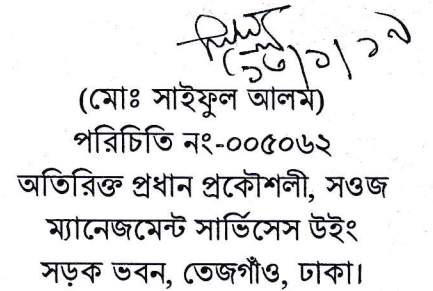 (মোঃ সাইফুল আলম)
পরিচিতি নং-০০৫০৬২
অতিরিক্ত প্রধান প্রকৌশলী, সওজ
ম্যানেজমেন্ট সার্ভিসেস উইং
সড়ক ভবন, তেজগাঁও, ঢাকা।